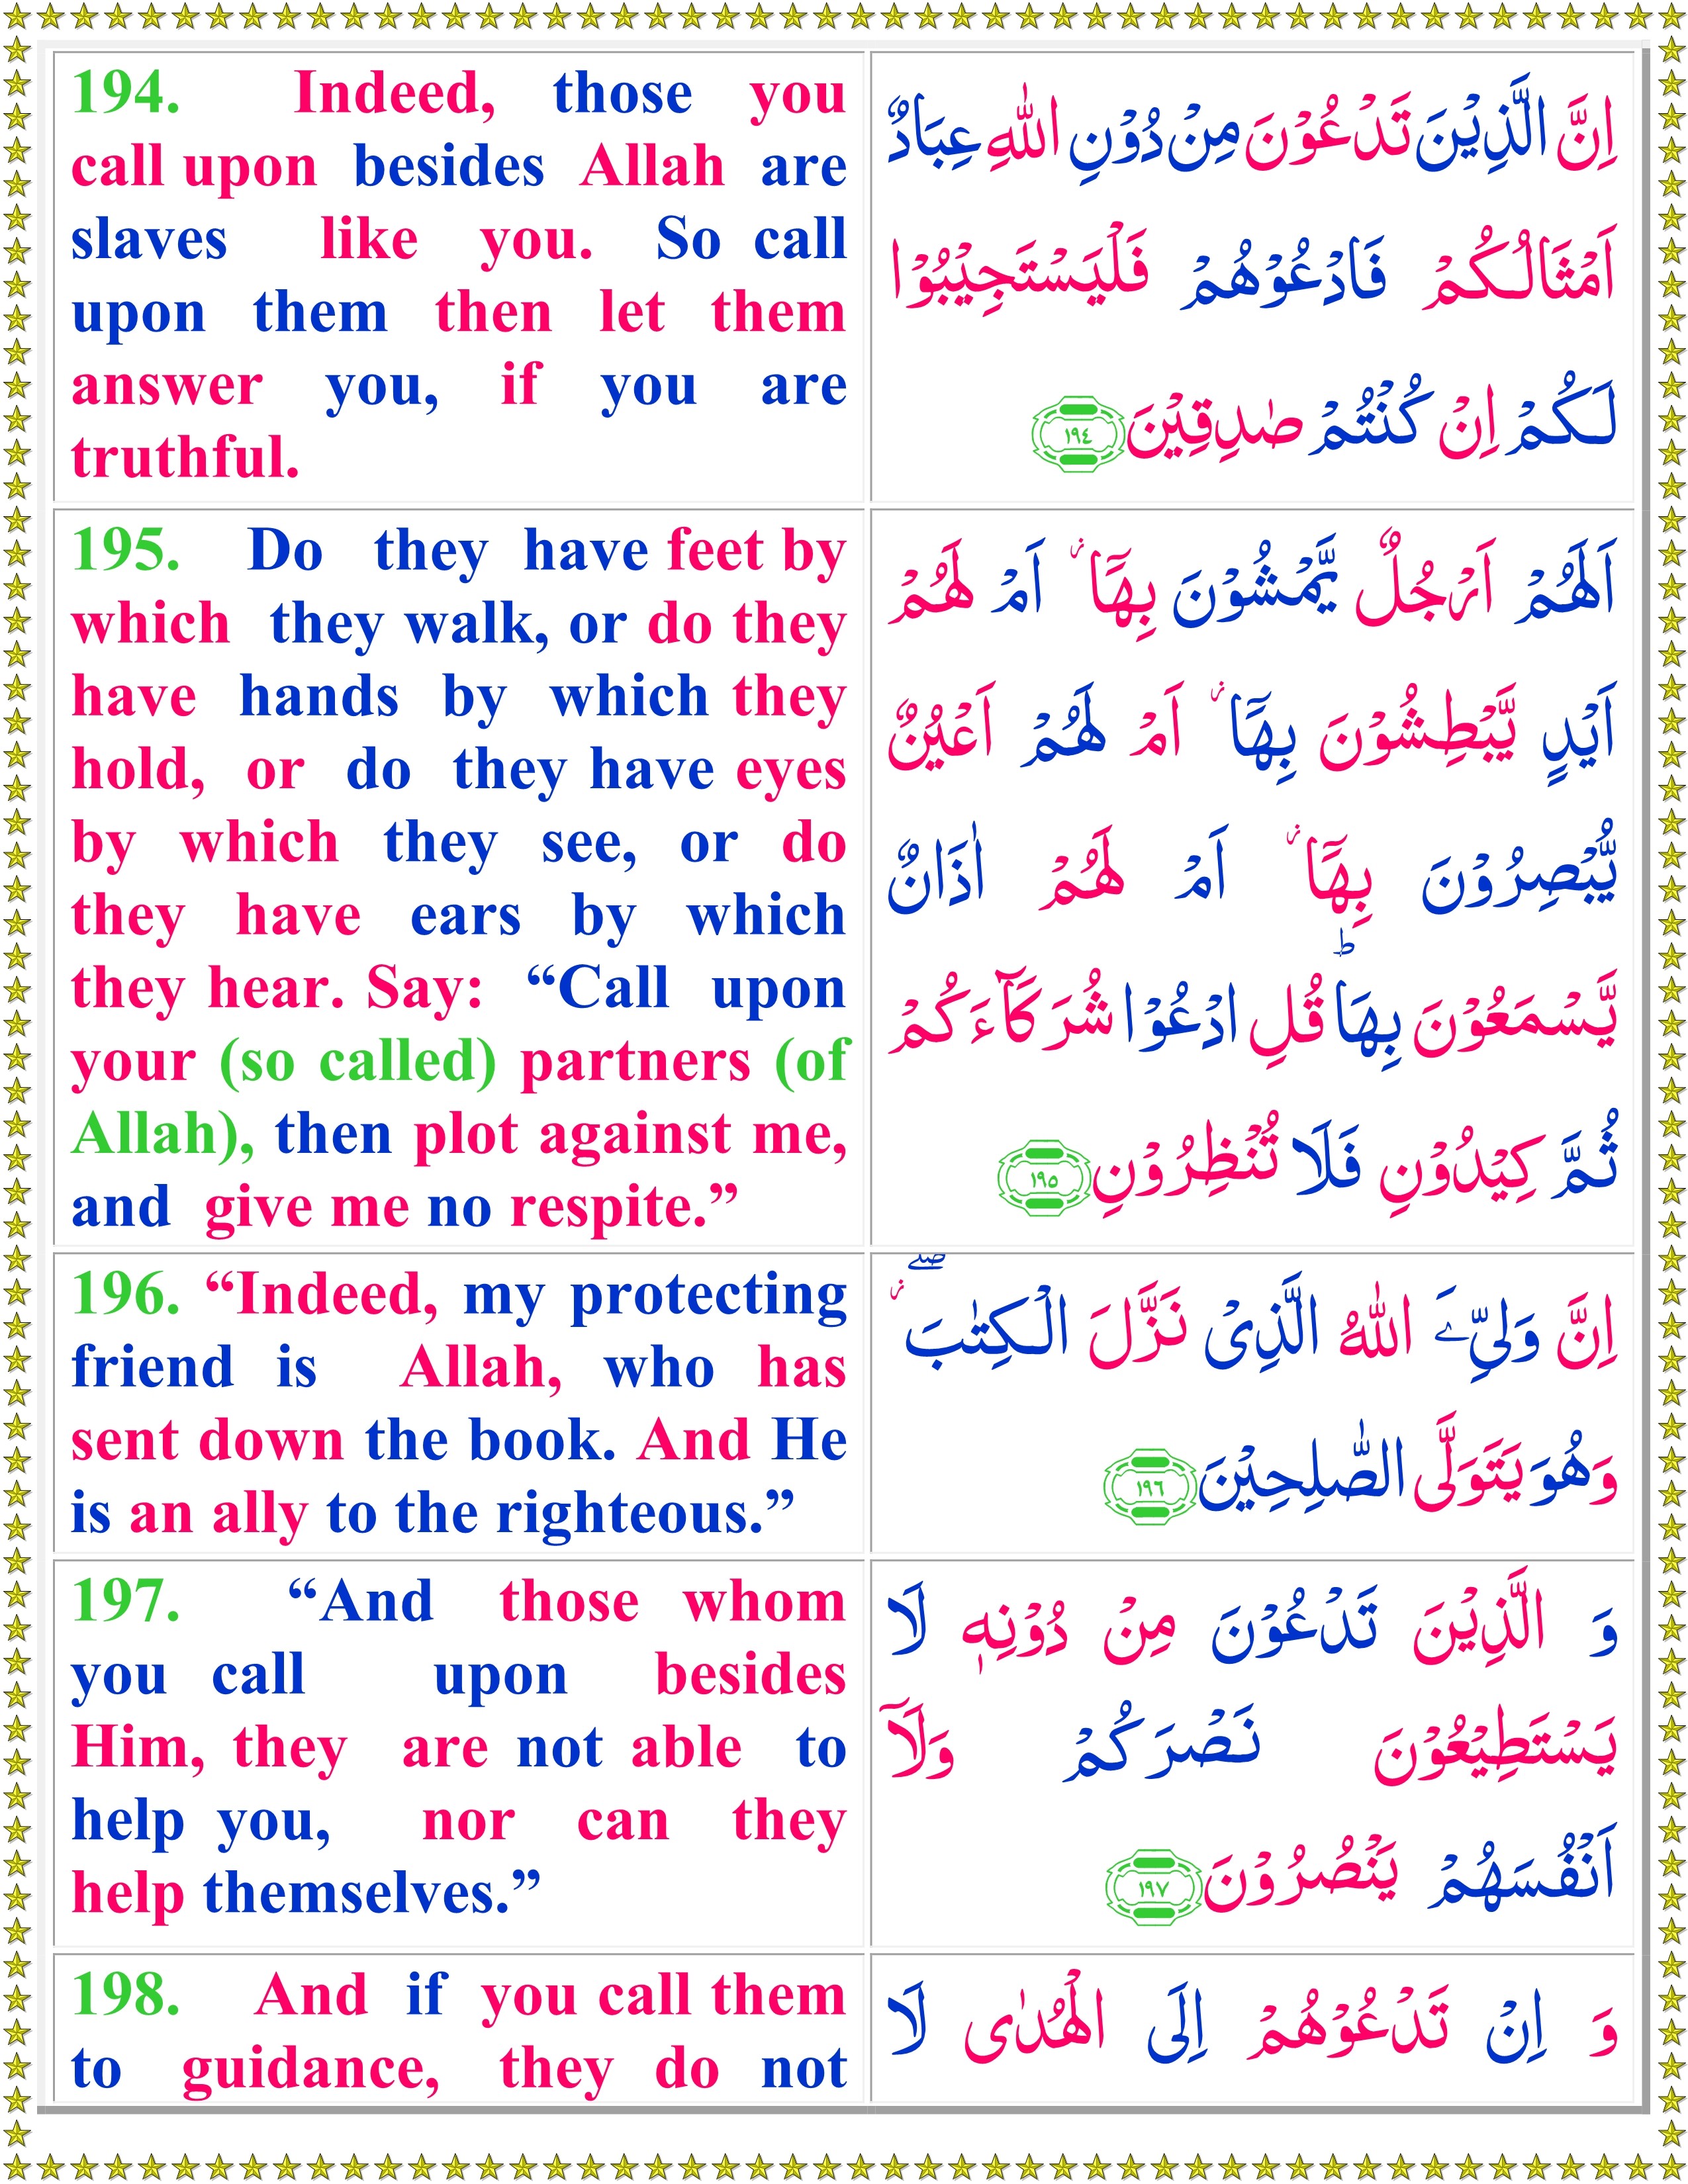 194. Indeed, those you
call upon besides Allah are
slaves like you. So call
upon them then let them
answer you, if you are
truthful.
اِنَّ الَّذِيْنَ تَدْعُوْنَ مِنْ دُوْنِ اللّٰهِ عِبَادٌ
اَمْثَالُـكُمْ فَادْعُوْهُمْ فَلْيَسْتَجِيْبُوْا
لَـكُمْ اِنْ كُنْتُمْ صٰدِقِيْنَ ١٩٤
195. Do they have feet by
which they walk, or do they
have hands by which they
hold, or do they have eyes
by which they see, or do
they have ears by which
they hear. Say: “Call upon
your (so called) partners (of
Allah), then plot against me,
and give me no respite.”
اَلَهُمْ اَرْجُلٌ يَّمْشُوْنَ بِهَاۤ ز اَمْ لَهُمْ
اَيْدٍ يَّبْطِشُوْنَ بِهَاۤ ز اَمْ لَهُمْ اَعْيُنٌ
يُّبْصِرُوْنَ بِهَاۤ ز اَمْ لَهُمْ اٰذَانٌ
يَّسْمَعُوْنَ بِهَا ؕ قُلِ ادْعُوْا شُرَكَآءَكُمْ
ثُمَّ كِيْدُوْنِ فَلَا تُنْظِرُوْنِ ١٩٥
196. “Indeed, my protecting
friend is Allah, who has
sent down the book. And He
is an ally to the righteous.”
اِنَّ وَلِيِّۦَ اللّٰهُ الَّذِىْ نَزَّلَ الْـكِتٰبَ ۖ ز
وَهُوَ يَتَوَلَّى الصّٰلِحِيْنَ ١٩٦
197. “And those whom
you call upon besides
Him, they are not able to
help you, nor can they
help themselves.”
وَ الَّذِيْنَ تَدْعُوْنَ مِنْ دُوْنِهٖ لَا
يَسْتَطِيْعُوْنَ نَصْرَكُمْ وَلَاۤ
اَنْفُسَهُمْ يَنْصُرُوْنَ ١٩٧
198. And if you call them
to guidance, they do not
وَ اِنْ تَدْعُوْهُمْ اِلَى الْهُدٰى لَا